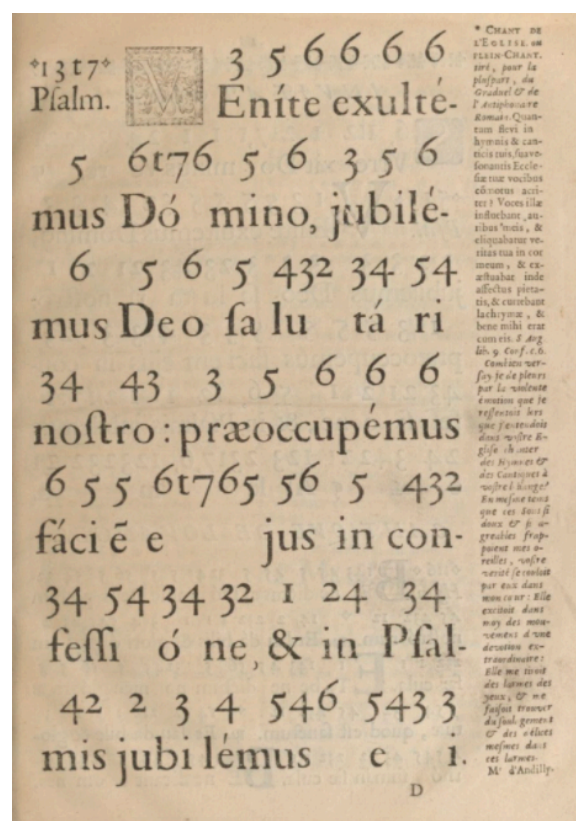 *1 3 t 7*
Psalm.
3 5 6 6 6 6
VEníte exulté-
5 6t76 5 6 3 5 6
mus Dó mino, jubilé-
6 5 6 5 432 34 54
mus Deo sa lu tá ri
34 43 3 5 6 6 6
nostro : præoccupémus
6 5 5 6t765 56 5 432
fáci ē e jus in con-
34 54 34 32 1 24 34
fessi ó ne, & in Psal-
42 2 3 4 546 543 3
mis jubi lemus e i.
D
* CHANT DE
L'EGLISE, ou
PLEIN-CHANT.
tiré, pour la
pluspart, du
Graduel & de
l'Antiphonaire
Romain. Quan-
tum flevi in
hymnis & can-
ticis tuis, suave-
sonantis Eccle-
siæ tuæ vocibus
cōmotus acri-
ter ! Voces illæ
influebant au-
ribus meis, &
eliquabatur ve-
ritas tua in cor
meum, & ex-
æstuabat inde
affectus pieta-
tis, & currebant
lachrymæ, &
bene mihi erat
cum eis. S. Aug.
lib. 9. Conf. c. 6.
Combien ver-
say-je de pleurs
par la violente
émotion que je
ressentois lors
que j'entendois
dans vostre E-
glise chanter
des Hymnes &
des Cantiques à
vostre loüange?
En mesme tems
que ces sons si
doux & si a-
greables frap-
poient mes o-
reilles, vostre
verité se couloit
par eux dans
mon cœur : Elle
excitoit dans
moy des mou-
vemens d'une
devotion ex-
traordinaire :
Elle me tiroit
des larmes des
yeux, & me
faisoit trouver
du soulagement
& des délices
mesmes dans
ces larmes.
Mr d'Andilly.